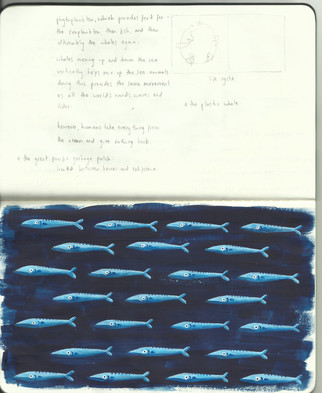 phytoplankton, which provides food for
the zooplankton, then fish and then
ultimately the whales again.
whales moving up and down the sea
vertically helps mix up the sea nutrients
doing this provides the same movement
as all the world's winds, waves and
tides.
however, humans take everything from
the ocean and give nothing back.
the great pacific garbage patch:
located between hawaii and california
the cycle
the plastic whale